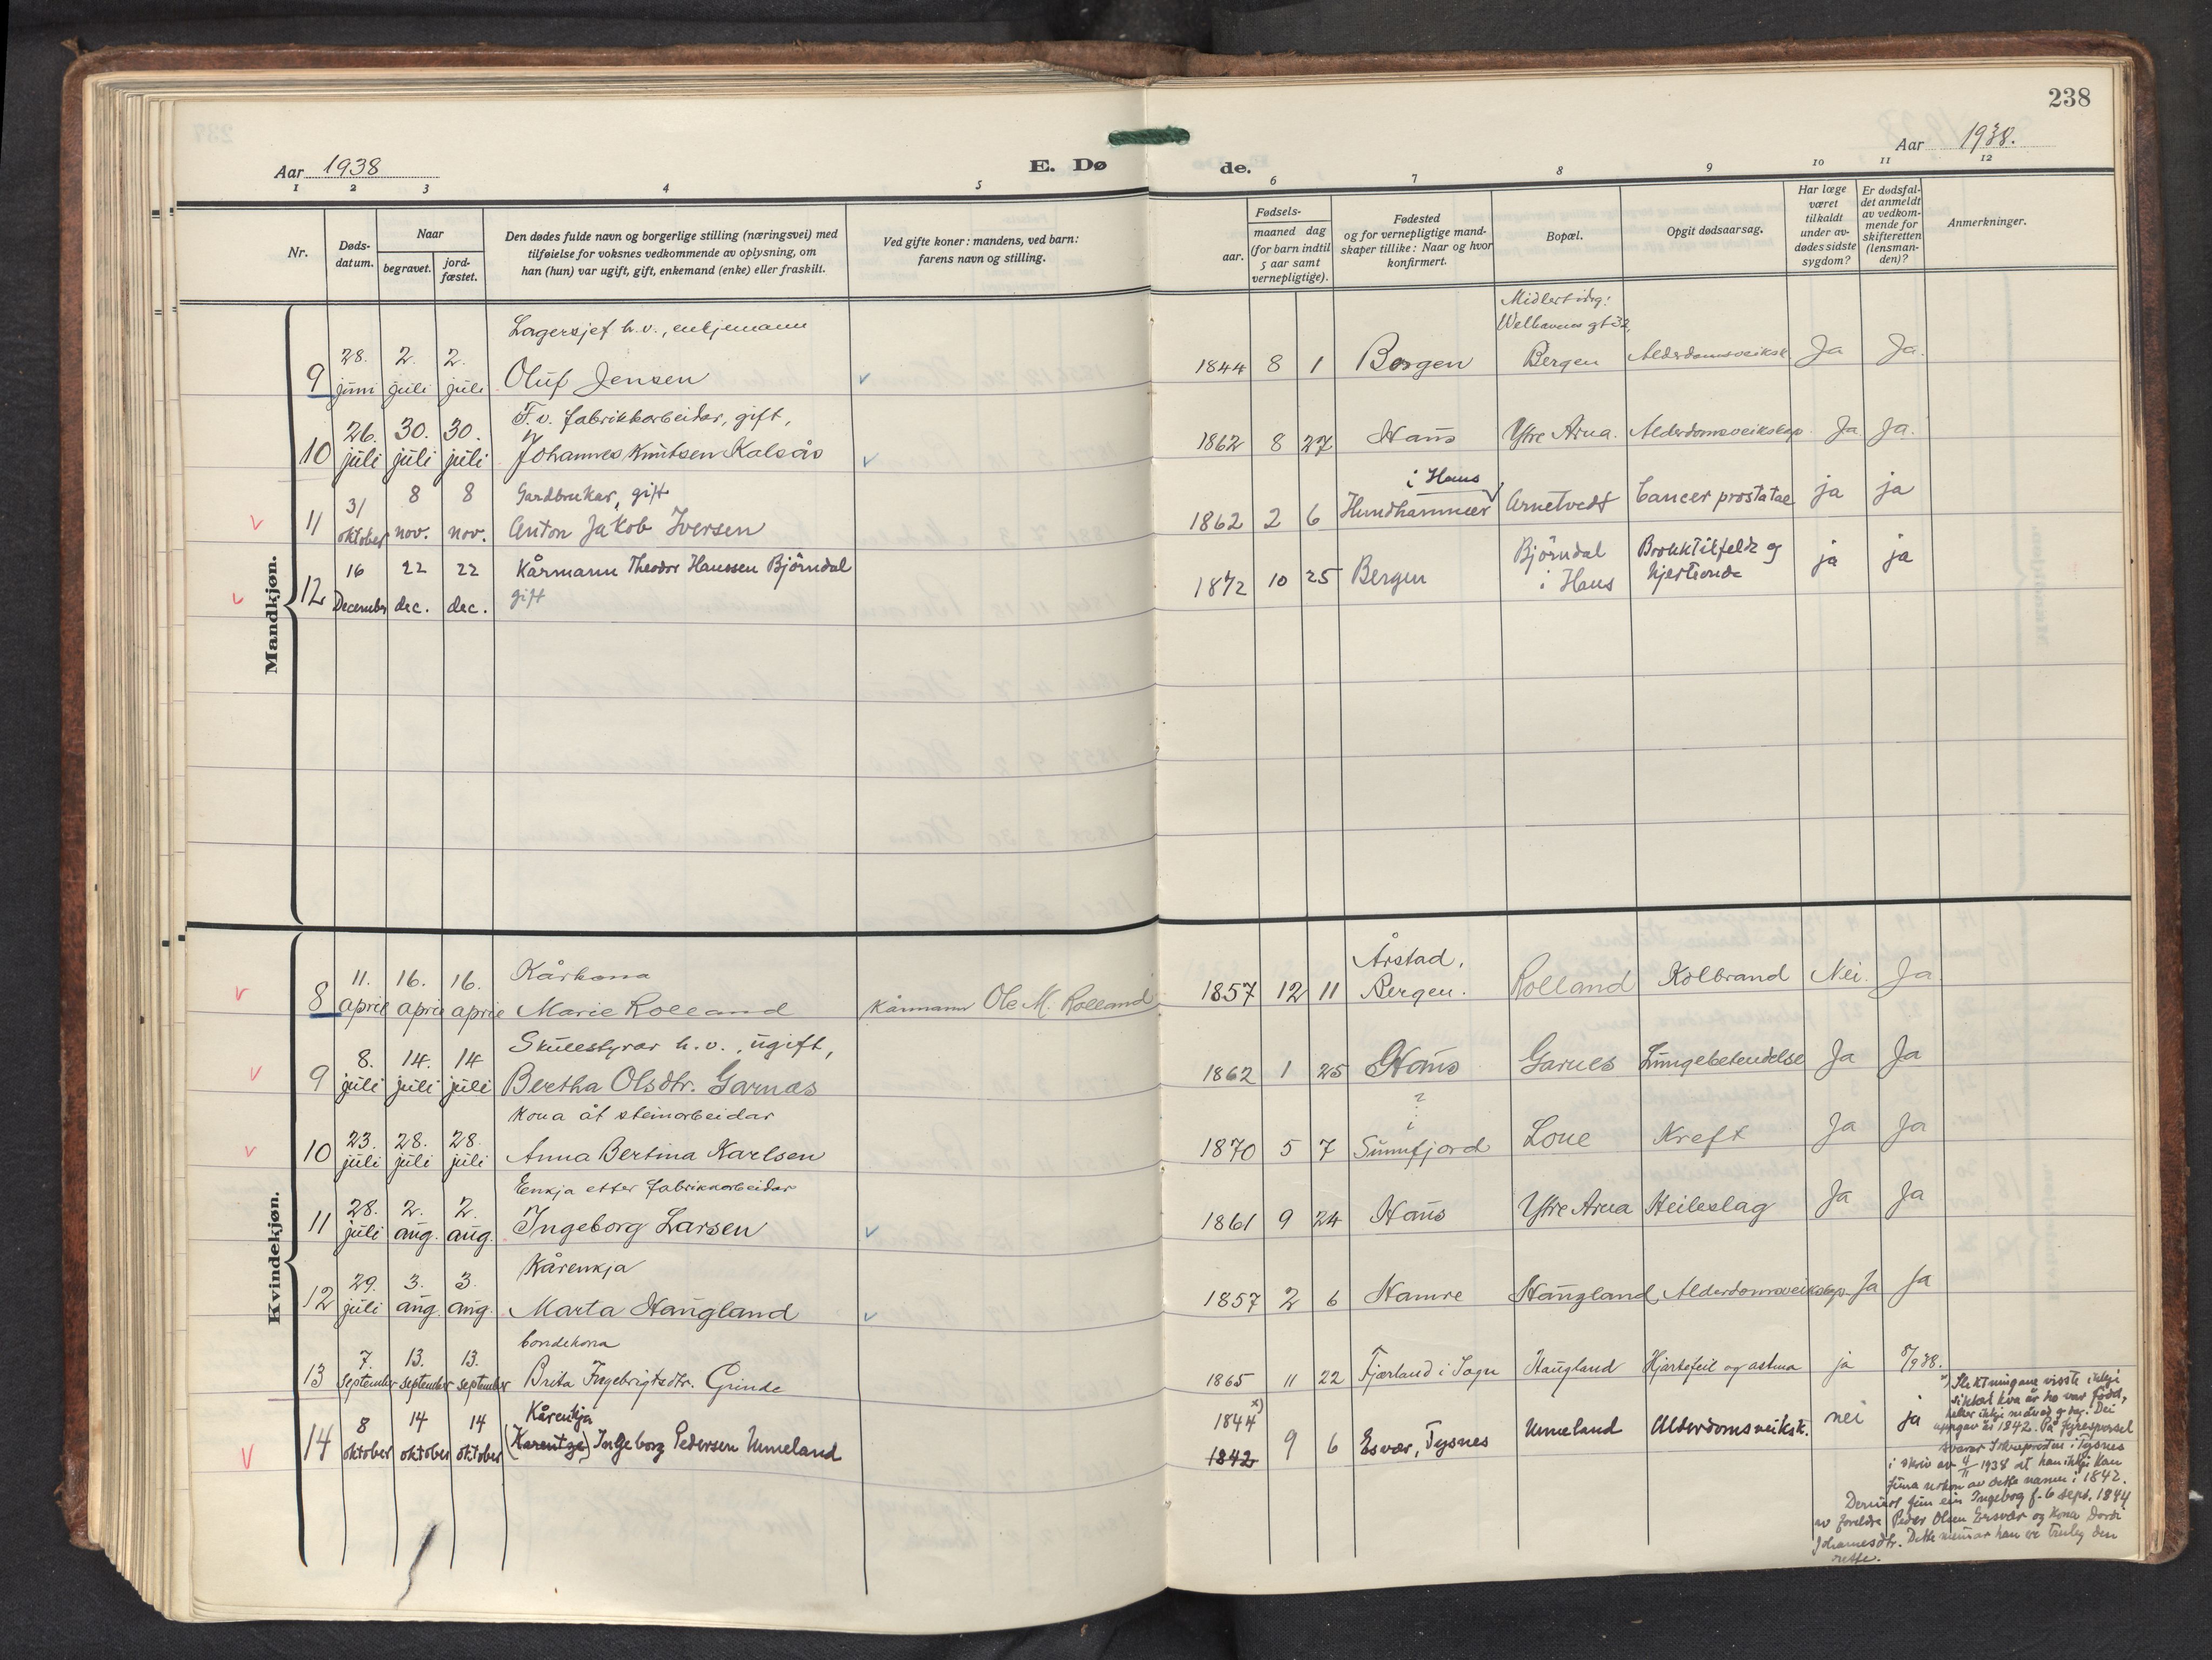 238
Aar 1938
E. Dø
de.
Aar 1938.
1 2 3 4 5
6 7 8 9 10 11 12
Nr.
Døds-
datum.
Naar
begravet.
jord-
fæstet.
Den dødes fulde navn og borgerlige stilling (næringsvei) med
tilføielse for voksnes vedkommende av oplysning, om
han (hun) var ugift, gift, enkemand (enke) eller fraskilt.
Ved gifte koner: mandens, ved barn:
farens navn og stilling.
Fødsels-
aar.
maaned dag
(for barn indtil
5 aar samt
vernepligtige).
Fødested
og for vernepligtige mand-
skaper tillike: Naar og hvor
konfirmert.
Bopæl.
Opgit dødsaarsag.
Har læge
været
tilkaldt
under av-
dødes sidste
sygdom?
Er dødsfal-
det anmeldt
av vedkom-
mende for
skifteretten
(lensman-
den)?
Anmerkninger.
Mandkjøn.
Lagersjef h.v., enkjemann
Midlertidig:
Welhavens gt 32,
9 28. juni 2. juli 2. juli Oluf Jensen 1844 8 1 Bergen Bergen Alderdomsveiksk. Ja Ja.
F.v. fabrikkarbeidar, gift,
10 26. juli 30. juli 30. juli Johannes Knutsen Kalsås 1862 8 27 Haus Ytre Arna. Alderdomsveikskap. Ja. Ja.
Gardbrukar, gift
i Haus
11 31 oktober 8 nov. 8 nov. Anton Jakob Iversen 1862 2 6 Hundhammer Arnetvedt Cancer prostatae ja ja
12 16 December 22 dec. 22 dec. Kårmann Theodor Hanssen Björndal 1872 10 25 Bergen Björndal Bronktilfelde og ja ja
gift i Haus hjerteonde
Kvindekjøn.
Kårkona
Årstad,
8 11. april 16. april 16. april Marie Rolland Kårmann Ole M. Rolland 1857 12 11 Bergen. Rolland Kolbrand Nei. Ja.
Skulestyrar h.v., ugift,
9 8. juli 14. juli 14 juli Bertha Olsdtr. Garnæs 1862 1 25 Haus Garnes Lungebetendelse Ja Ja
Kona åt steinarbeidar
?
10 23. juli 28. juli 28. juli Anna Bertina Karlsen 1870 5 7 Sunnfjord Lone Kreft Ja Ja
Enkja etter fabrikkarbeidar
11 28. juli 2. aug. 2. aug. Ingeborg Larsen 1861 9 24 Haus Ytre Arna Heileslag Ja Ja
Kårenkja
12 29. juli 3. aug. 3. aug. Marta Haugland 1857 2 6 Hamre Haugland, Alderdomsveikskap Ja Ja
bondekona
13 7. september 13. september 13. september Brita Ingebrigtsdtr. Grinde 1865 11 22 Fjærland i Sogn Haugland Hjartefeil og astma ja 8/9 38.
Kårenkja
x)
1844
14 8 oktober 14 oktober 14 oktober (Karentze) Ingeborg Pedersen Unneland 1842 9 6 Esvær, Tysnes Unneland Alderdomsveiksk. nei ja
x) Slektningane visste ikkje
sikkert kva år ho var född,
heller ikkje månad og dag. Dei
uppgav år 1842. På fyrespursel
svarar Sokneprosten i Tysnes
i skriv av 4/11 1938 at han ikkje kan
finna nokon av dette namn i 1842.
Derimot finn ein Ingeborg f. 6 sept. 1844
av foreldre Peder Olsen Ersvær og kona Dordi
Johannesdtr. Dette meinar han er truleg den
rette.